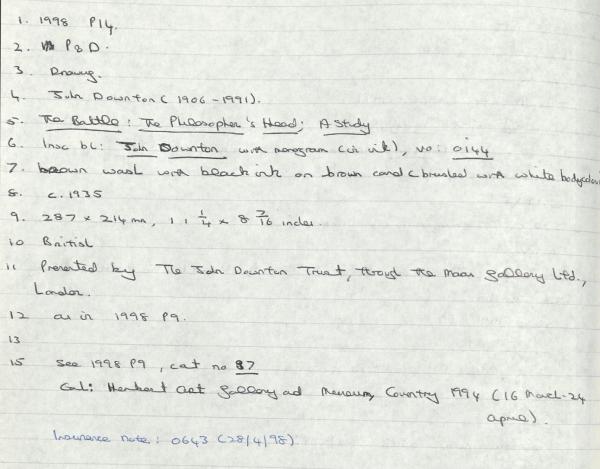 1. 1998 P14.
2. P&D.
3. Drawing.
4. John Downton (1906-1991).
5. The Battle: The Philosopher's Head; A Study
6. Insc bl: John Downton with monogram (in ink), vo: 0144
7. brown wash with black ink on brown card (brushed with white bodycolour
8. c.1935
9. 287 x 214 mm, 11 1/4 x 8 7/16 inches.
10 British
11 Presented by The John Downton Trust, through the Maas Gallery Ltd.,
London.
12 as in 1998 P9.
13
15 See 1998 P9, cat no 87
Col: Herbert Art Gallery and Museum, Coventry 1994 (16 March-24
April).
Insurance note: 0643 (28/4/98)